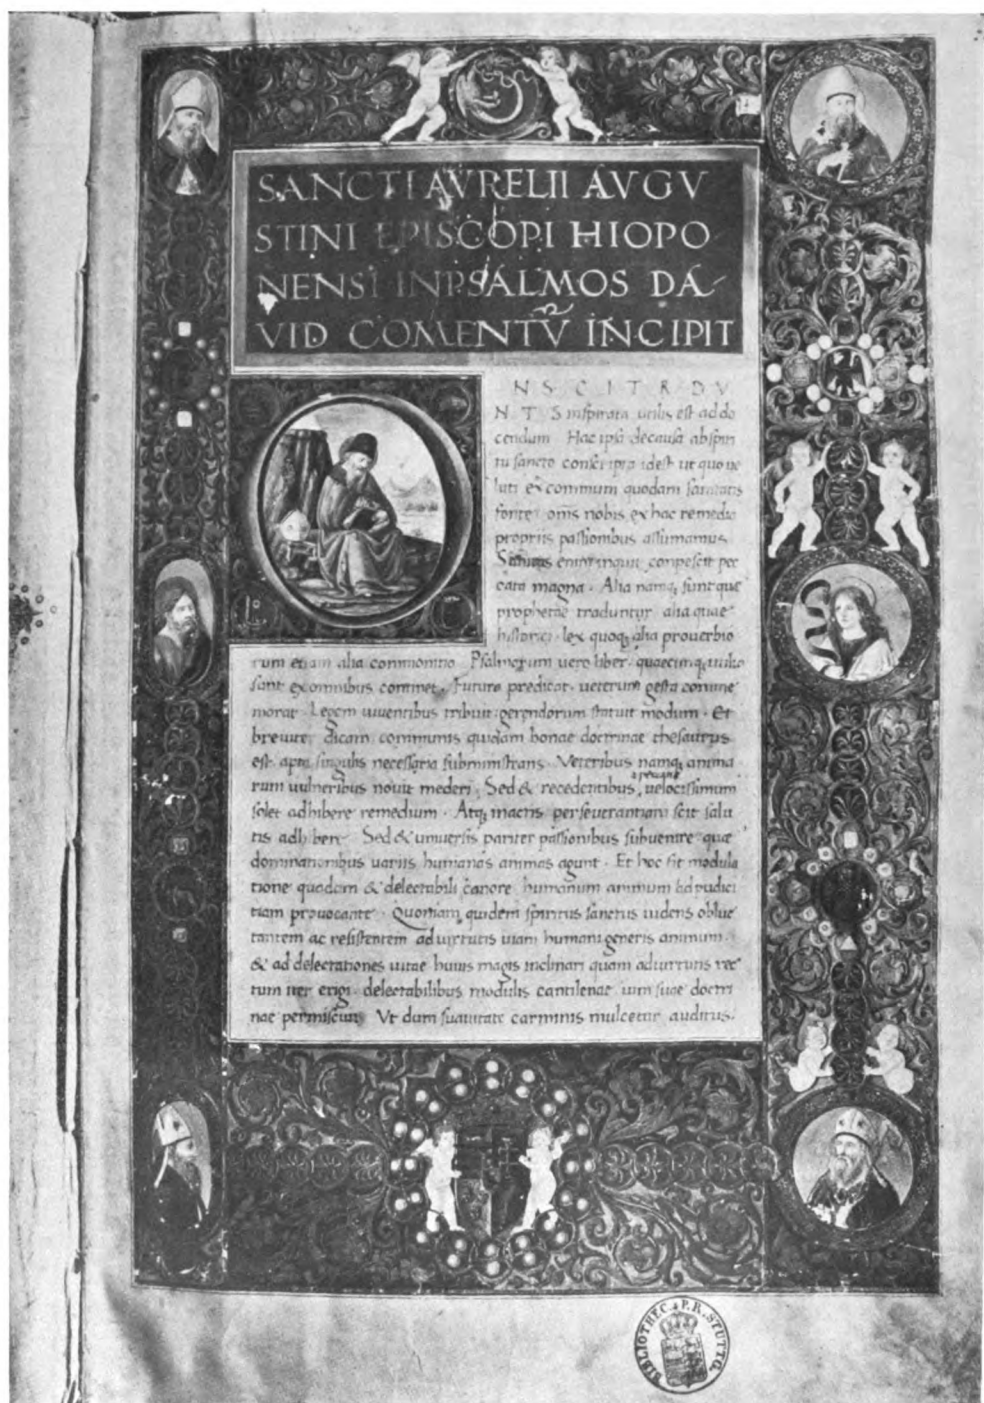 SANCTI AVRELII AVGV
STINI EPISCOPI HIOPO
NENSI INPSALMOS DA
VID COMENTV INCIPIT
N S C I T R D V
N T S inspirata utilis est ad do
cendum Hac ipsa decausa abspiri
tu sancto conscripta idest ut quo ue
luti ex communi quodam sanitatis
fonte omīs nobis ex hac remedia
propriis passionibus assumamus
enim inquit conpescit pec
cata magna. Alia namq; sunt que
prophetae traduntur alia quae
historici. lex quoq; alia prouerbio
rum etiam alia commonitio Psalmorum uero liber quaecunq; utilia
sunt ex omnibus continet. Futura predicat. ueterum gesta comme
morat. Legem uiuentibus tribuit. gerendorum statuit modum. Et
breuiter dicam communis quidam bonae doctrinae thesaurus
est apta singulis necessaria subministrans. Veteribus namq; anima
rum uulneribus nouit mederi. Sed & recedentibus, uelocissimum
solet adhibere remedium. Atq; perseuerantiam scit salu
tis adhibere Sed & uniuersis pariter passionibus subuenire quae
dominationibus uariis humanas animas agunt. Et hoc sit modula
tione quadam & delectabili canore humanum animum ad pudici
tiam prouocante. Quoniam quidem spiritus sanctus uidens obluc
tantem ac resistentem ad uirtutis uiam humani generis animum.
& ad delectationes uitae huius magis inclinari quam aduirtutis rec
tum iter erigi. delectabilibus modulis cantilenae uim suae doctri
nae permiscuit Vt dum suauitate carminis mulcetur auditus.
BIBLIOTHEC. P. R. STUTTG.